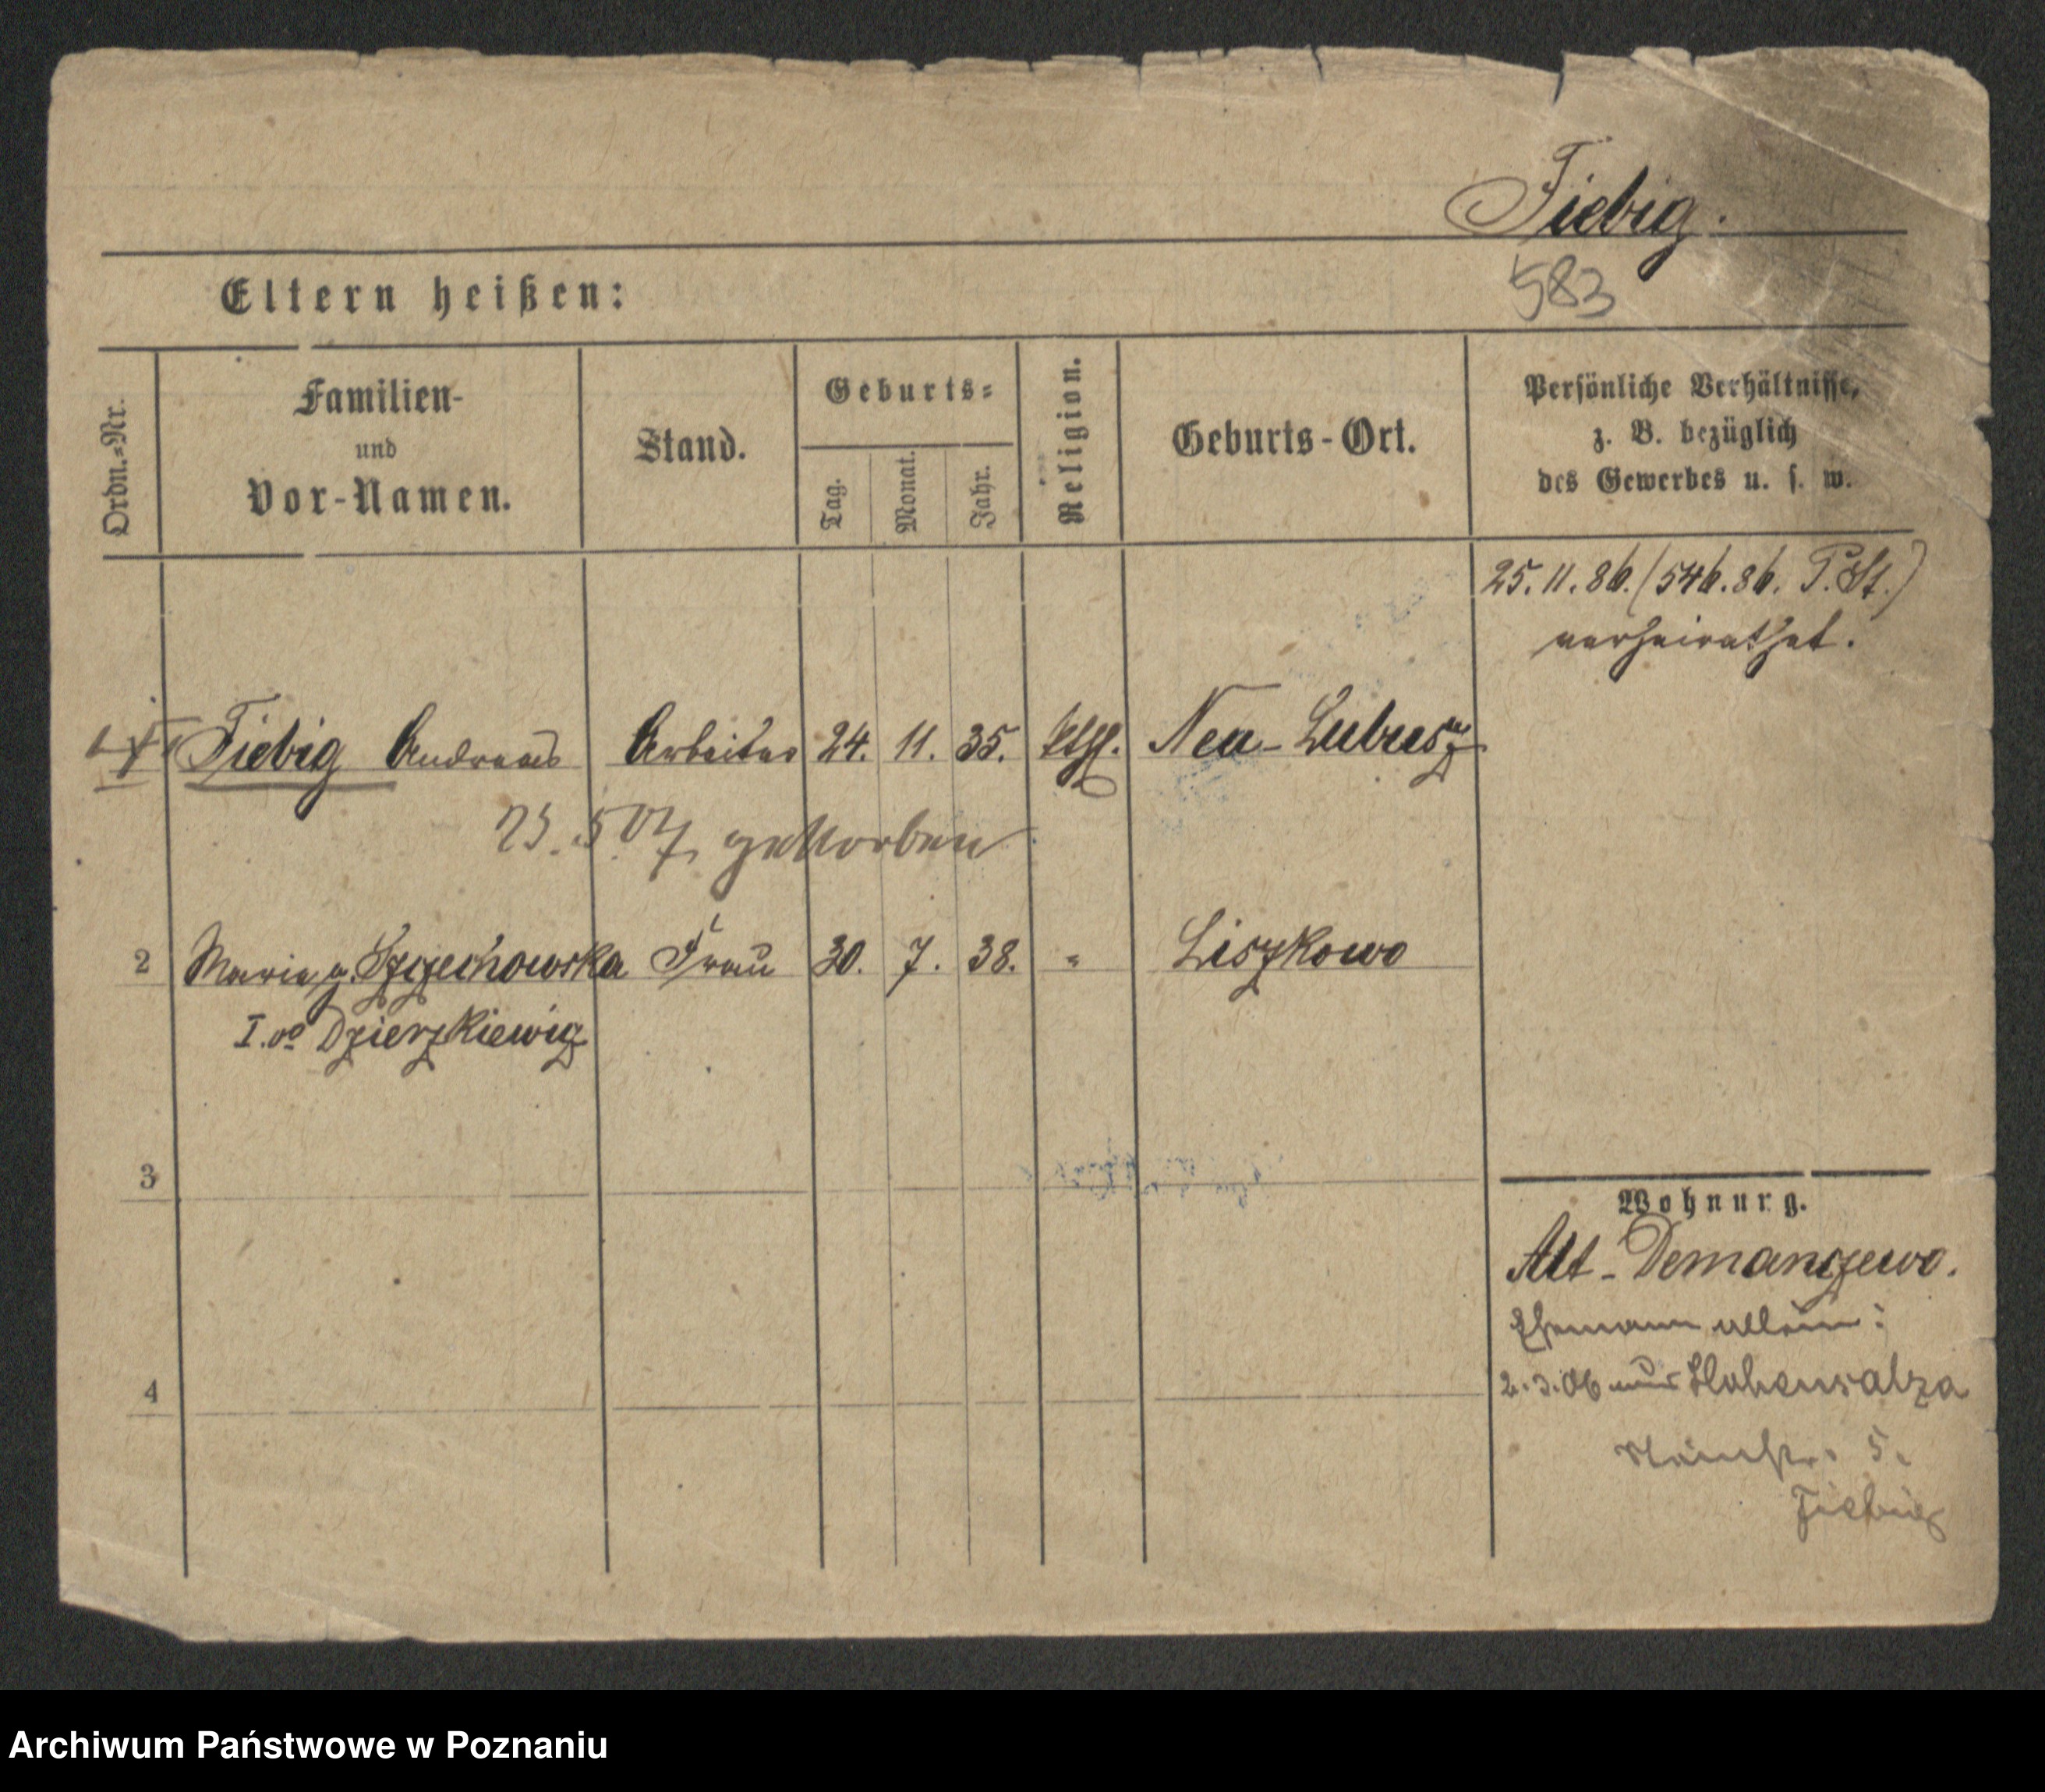 Fiebig.
583
Eltern heißen:
Ordn.=Nr.
Familien-
und
Vor-Namen.
Stand.
Geburts=
Tag.
Monat.
Jahr.
Religion.
Geburts-Ort.
Persönliche Verhältnisse,
z. B. bezüglich
des Gewerbes u. s. w.
25.11.86. (546.86. P. St.)
verheirathet.
Fiebig Andreas Arbeiter 24. 11. 35. kthl. Neu-Lubusz
5.07 gestorben
2 Maria g. Szczechowska Frau 30. 7. 38. " Liszkowo
I. vo Dzierzkiewicz
3
Wohnung.
Alt-Demanczewo.
Ehemann allein:
2.3.06 nach Hohensalza
4
5.
Fiebig
Archiwum Państwowe w Poznaniu